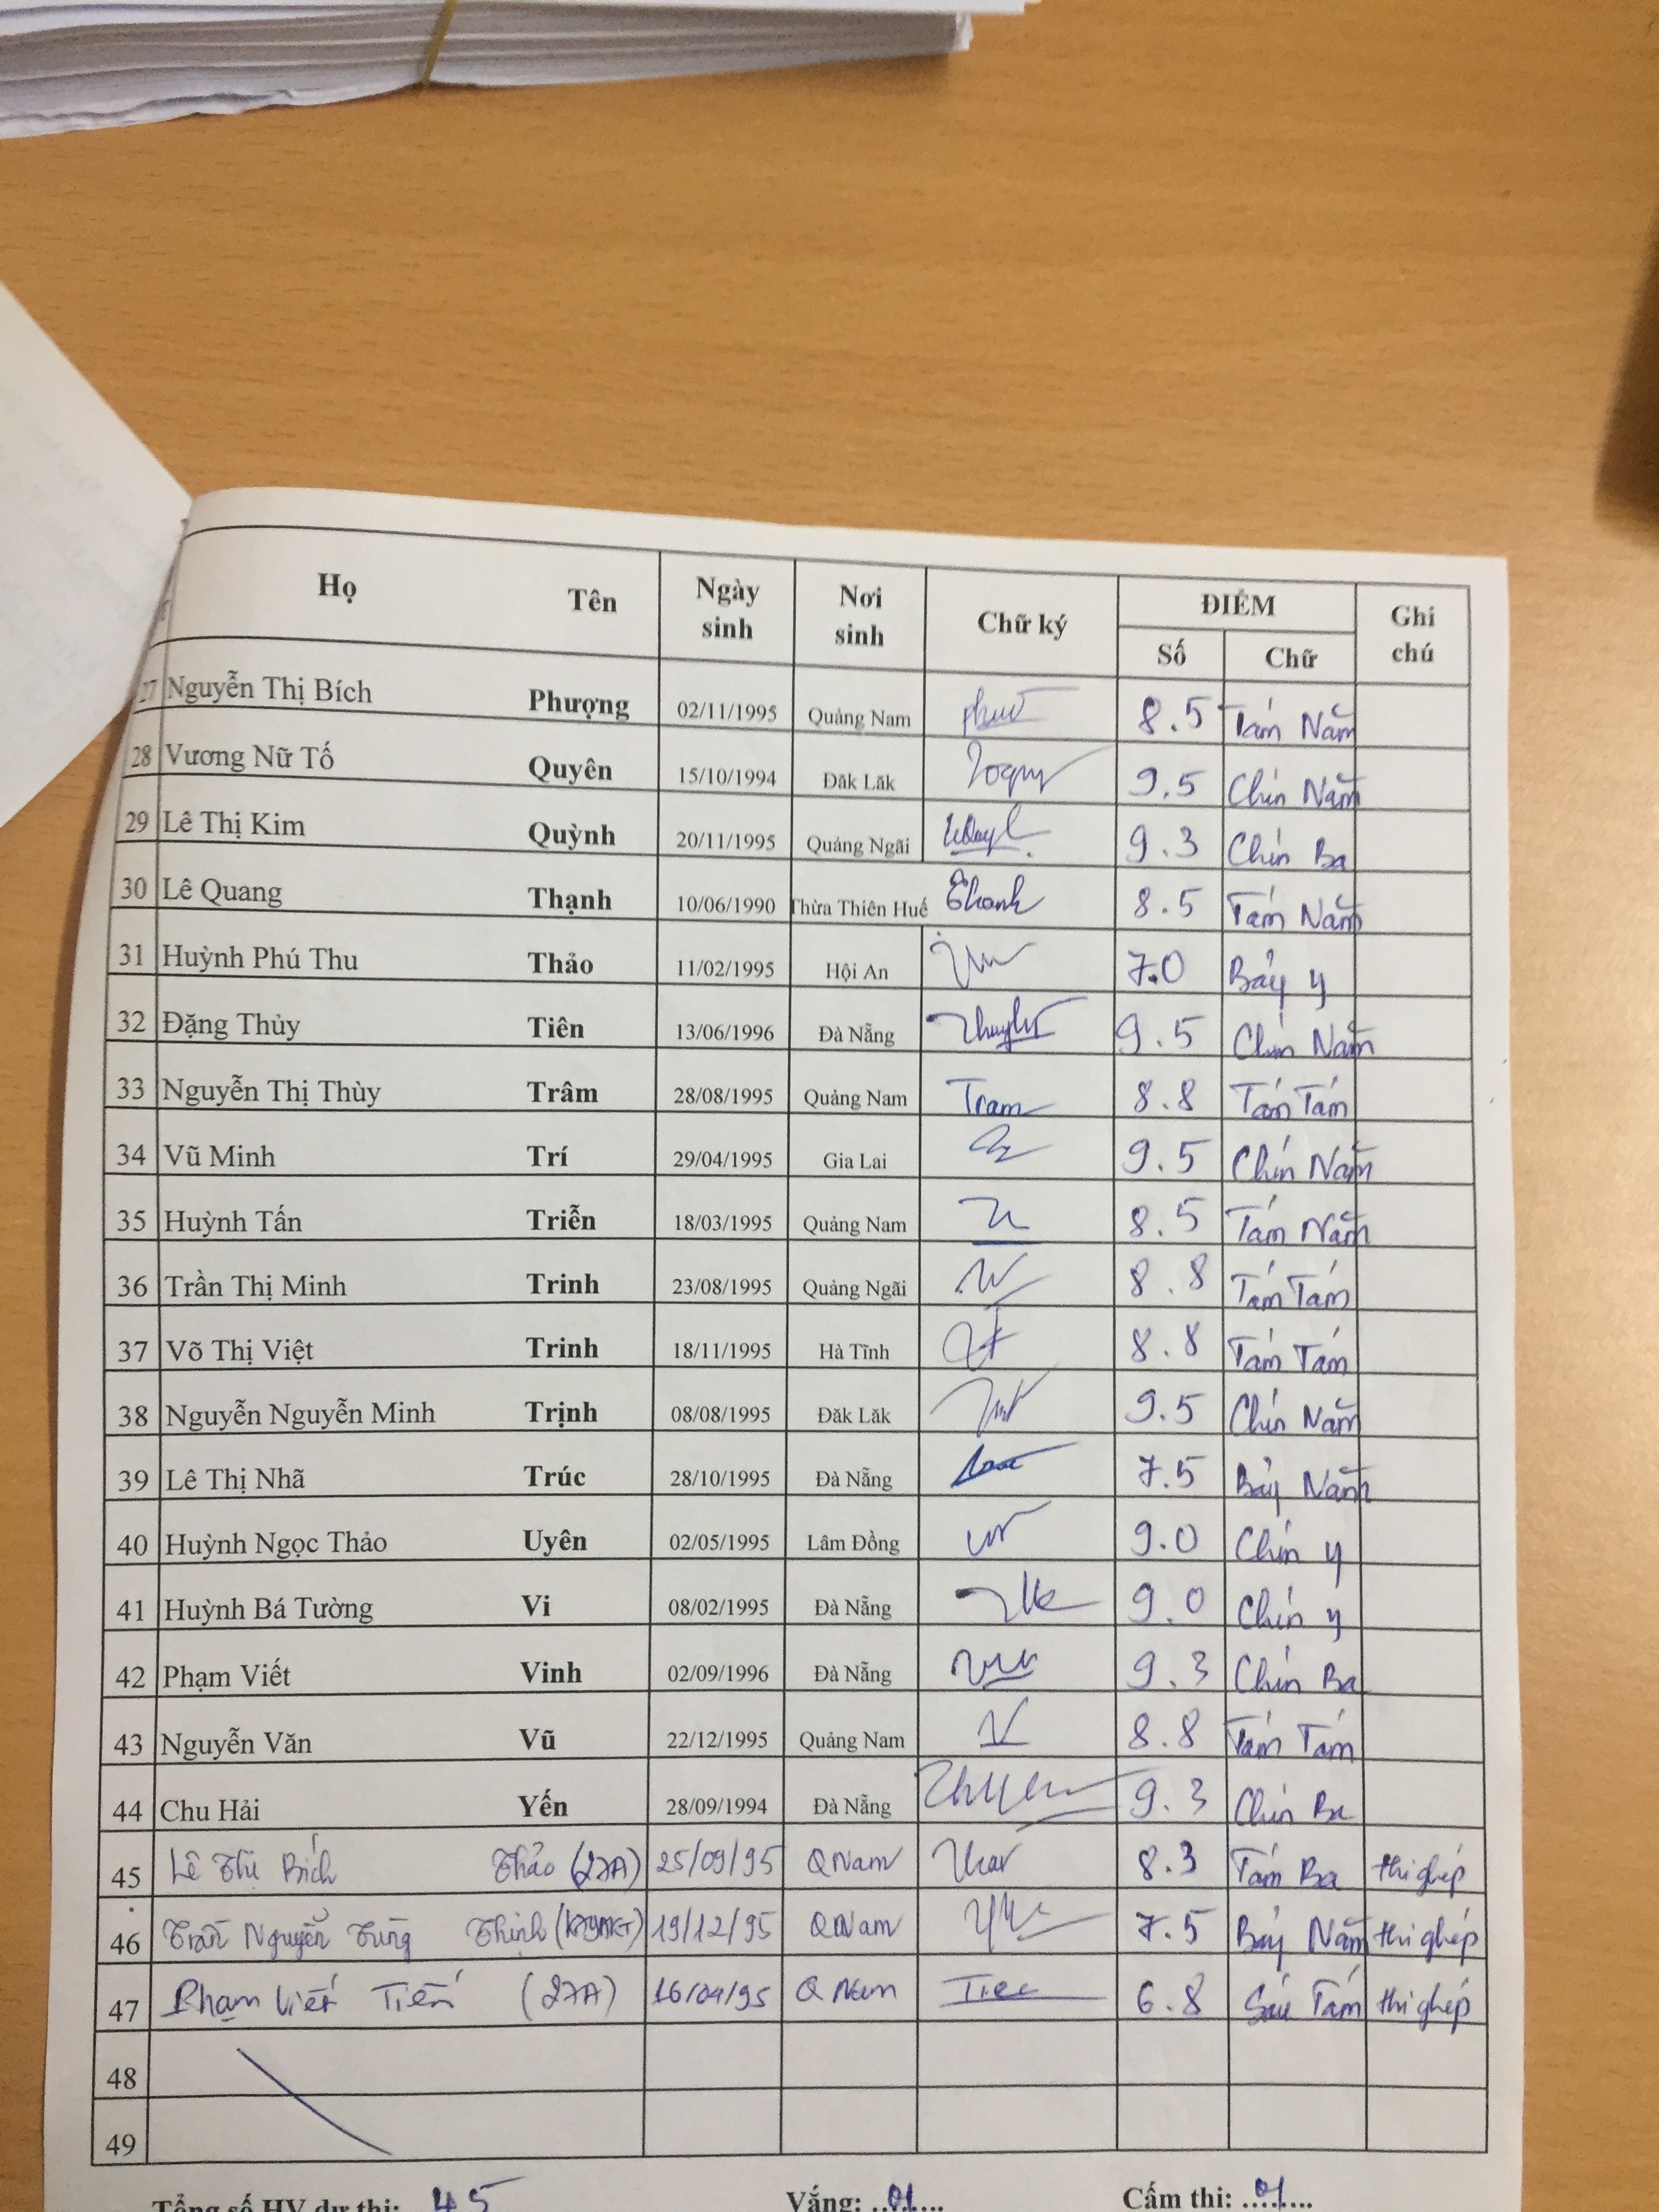 Họ Tên Ngày sinh Nơi sinh Chữ ký ĐIỂM Ghi chú
Số Chữ
27 Nguyễn Thị Bích Phượng 02/11/1995 Quảng Nam 8.5 Tám Năm
28 Vương Nữ Tố Quyên 15/10/1994 Đăk Lăk 9.5 Chín Năm
29 Lê Thị Kim Quỳnh 20/11/1995 Quảng Ngãi 9.3 Chín Ba
30 Lê Quang Thạnh 10/06/1990 Thừa Thiên Huế 8.5 Tám Năm
31 Huỳnh Phú Thu Thảo 11/02/1995 Hội An 7.0 Bảy y
32 Đặng Thủy Tiên 13/06/1996 Đà Nẵng 9.5 Chín Năm
33 Nguyễn Thị Thùy Trâm 28/08/1995 Quảng Nam Tram 8.8 Tám Tám
34 Vũ Minh Trí 29/04/1995 Gia Lai 9.5 Chín Năm
35 Huỳnh Tấn Triễn 18/03/1995 Quảng Nam 8.5 Tám Năm
36 Trần Thị Minh Trinh 23/08/1995 Quảng Ngãi 8.8 Tám Tám
37 Võ Thị Việt Trinh 18/11/1995 Hà Tĩnh 8.8 Tám Tám
38 Nguyễn Nguyễn Minh Trịnh 08/08/1995 Đăk Lăk 9.5 Chín Năm
39 Lê Thị Nhã Trúc 28/10/1995 Đà Nẵng 7.5 Bảy Năm
40 Huỳnh Ngọc Thảo Uyên 02/05/1995 Lâm Đồng 9.0 Chín y
41 Huỳnh Bá Tường Vi 08/02/1995 Đà Nẵng 9.0 Chín y
42 Phạm Viết Vinh 02/09/1996 Đà Nẵng 9.3 Chín Ba
43 Nguyễn Văn Vũ 22/12/1995 Quảng Nam 8.8 Tám Tám
44 Chu Hải Yến 28/09/1994 Đà Nẵng 9.3 Chín Ba
45 Lê Thị Bích Thảo 25/09/95 QNam 8.3 Tám Ba thi ghép
46 Trần Nguyễn Tùng Thịnh 19/12/95 QNam 7.5 Bảy Năm thi ghép
47 Phạm Viết Tiến 16/04/95 QNam 6.8 Sáu Tám thi ghép
48
49
Tổng số HV dự thi: 45 Vắng: ..01.... Cấm thi: ..01....